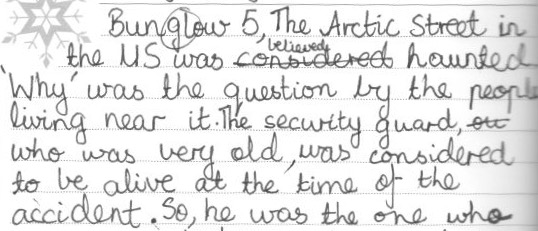 Bunglow 5, The Arctic Street in
the US was considered believed haunted
'Why' was the question by the people
living near it. The security guard,
who was very old, was considered
to be alive at the time of the
accident. So, he was the one who